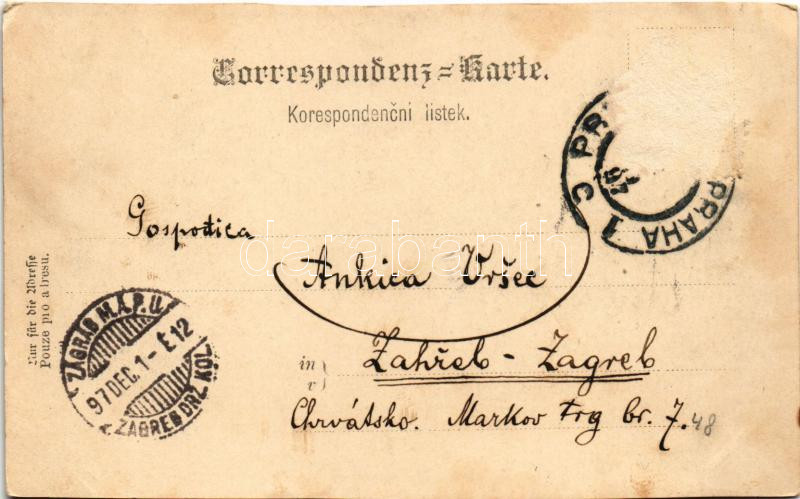 Correspondenz-Karte.
Korespondenční lístek.
PRAHA 1 C PR
97
Gospodica
Ankica Vršec
Nur für die Adresse
Pouze pro adresu.
ZÁGRÁB M.Á.P.U.
97 DEC. 1 - É 12
ZAGREB DRŽ. KOL.
in
v
Zahřeb - Zagreb
Chrvátsko. Markov trg br. 7.
48
darabanth